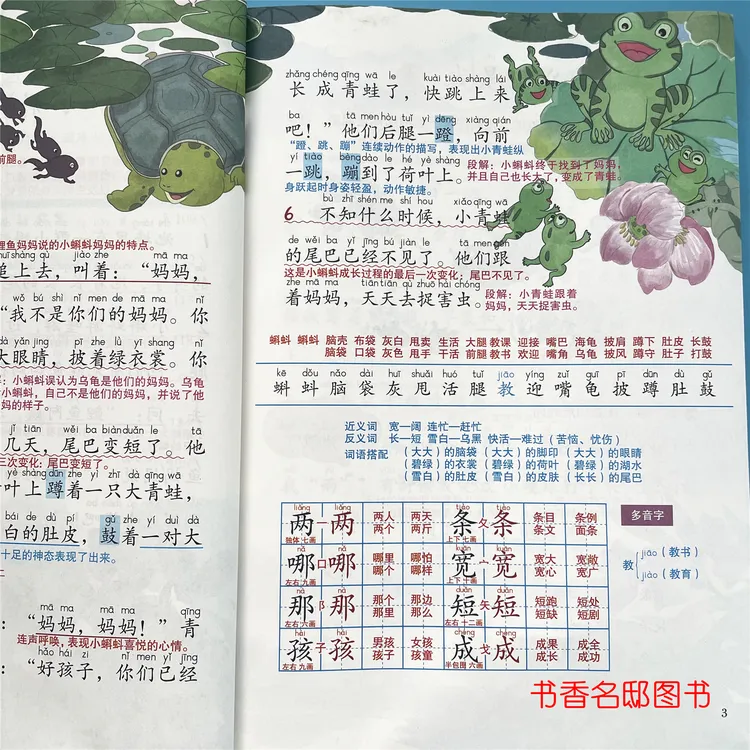 前腿。
鲤鱼妈妈说的小蝌蚪妈妈的特点。
huǐ shàng qù jiào zhe mā ma
追上去，叫着：“妈妈，
wǒ bú shì nǐ men de mā ma nǐ
“我不是你们的妈妈。你
dà yǎn jing pī zhe lǜ yī shang nǐ
大眼睛，披着绿衣裳。你
小蝌蚪误认为乌龟是他们的妈妈。乌龟
小蝌蚪，自己不是他们的妈妈，并说了他
妈的样子。
jǐ tiān wěi ba biàn duǎn le tā
几天，尾巴变短了。他
三次变化：尾巴变短了。
yè shàng dūn zhe yì zhī dà qīng wā
叶上蹲着一只大青蛙，
bái de dù pí gǔ zhe yí duì dà
白的肚皮，鼓着一对大
十足的神态表现了出来。
mā ma mā ma qīng
“妈妈，妈妈！”青
连声呼唤，表现小蝌蚪喜悦的心情。
hǎo hái zi nǐ men yǐ jīng
：“好孩子，你们已经
zhǎng chéng qīng wā le kuài tiào shàng lái
长成青蛙了，快跳上来
ba tā men hòu tuǐ yì dēng xiàng qián
吧！”他们后腿一蹬，向前
“蹬、跳、蹦”连续动作的描写，表现出小青蛙纵
yí tiào bèng dào le hé yè shàng
一跳，蹦到了荷叶上。
身跃起时身姿轻盈，动作敏捷。
段解：小蝌蚪终于找到了妈妈，
并且自己也长大了，变成了青蛙。
bù zhī shén me shí hou xiǎo qīng wā
6 不知什么时候，小青蛙
de wěi ba yǐ jīng bú jiàn le tā men gēn
的尾巴已经不见了。他们跟
这是小蝌蚪成长过程的最后一次变化：尾巴不见了。
zhe mā ma tiān tiān qù zhuō hài chóng
着妈妈，天天去捉害虫。
段解：小青蛙跟着
妈妈，天天捉害虫。
蝌蚪 蝌蚪 脑壳 布袋 灰白 甩卖 生活 大腿 教课 迎接 嘴巴 海龟 披肩 蹲下 肚皮 长鼓
脑袋 口袋 灰色 甩手 干活 前腿 教书 欢迎 嘴角 乌龟 披风 蹲守 肚子 打鼓
kē dǒu nǎo dài huī shuǎi huó tuǐ jiāo yíng zuǐ guī pī dūn dù gǔ
蝌 蚪 脑 袋 灰 甩 活 腿 教 迎 嘴 龟 披 蹲 肚 鼓
近义词 宽—阔 连忙—赶忙
反义词 长—短 雪白—乌黑 快活—难过（苦恼、忧伤）
词语搭配 （大大）的脑袋 （大大）的脚印 （大大）的眼睛
（碧绿）的衣裳 （碧绿）的荷叶 （碧绿）的湖水
（雪白）的肚皮 （雪白）的皮肤 （长长）的尾巴
liǎng tiáo
两 一 两 两人 两天 条 夂 条 条目 条例
独体 七画 两个 两斤 上下 七画 条文 面条
nǎ kuān
哪 口 哪 哪里 哪怕 宽 宀 宽 宽大 宽敞
左右 九画 哪个 哪样 上下 十画 宽心 宽广
nà duǎn
那 阝 那 那个 那边 短 矢 短 短跑 短处
左右 六画 那里 那么 左右 十二画 短缺 短剧
hái chéng
孩 子 孩 男孩 女孩 成 戈 成 成果 成全
左右 九画 孩子 孩童 半包围 六画 成长 成功
多音字
教 jiāo（教书）
jiào（教育）
书香名邸图书
3